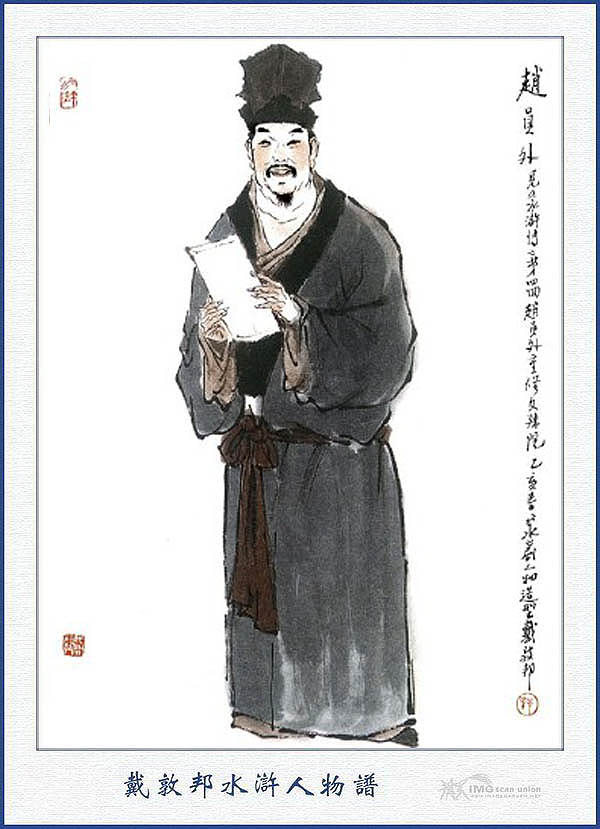 趙員外 見《水滸傳》第四回趙員外重修文殊院 乙亥春 水滸人物造型 戴敦邦
戴敦邦水滸人物譜
IMG scan-union